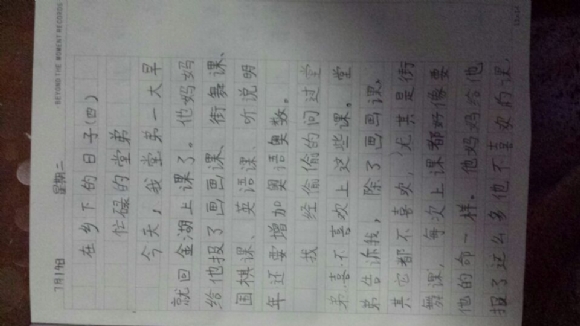 BEYOND THE MOMENT RECORDS
7月19日 星期二
在乡下的日子(四)
忙碌的堂弟
今天,我堂弟一大早
就回金湖上课了。他妈妈
给他报了画画课、街舞课、
围棋课、英语课、听说明
年还要增加奥语奥数。
我经偷偷的问过堂
弟喜不喜欢上这些课。堂
弟告诉我,除了画画课,
其它都不喜欢,尤其是街
舞课,每次上课都好像要
他的命一样。他妈妈给他
报了这么多他不喜欢的课,